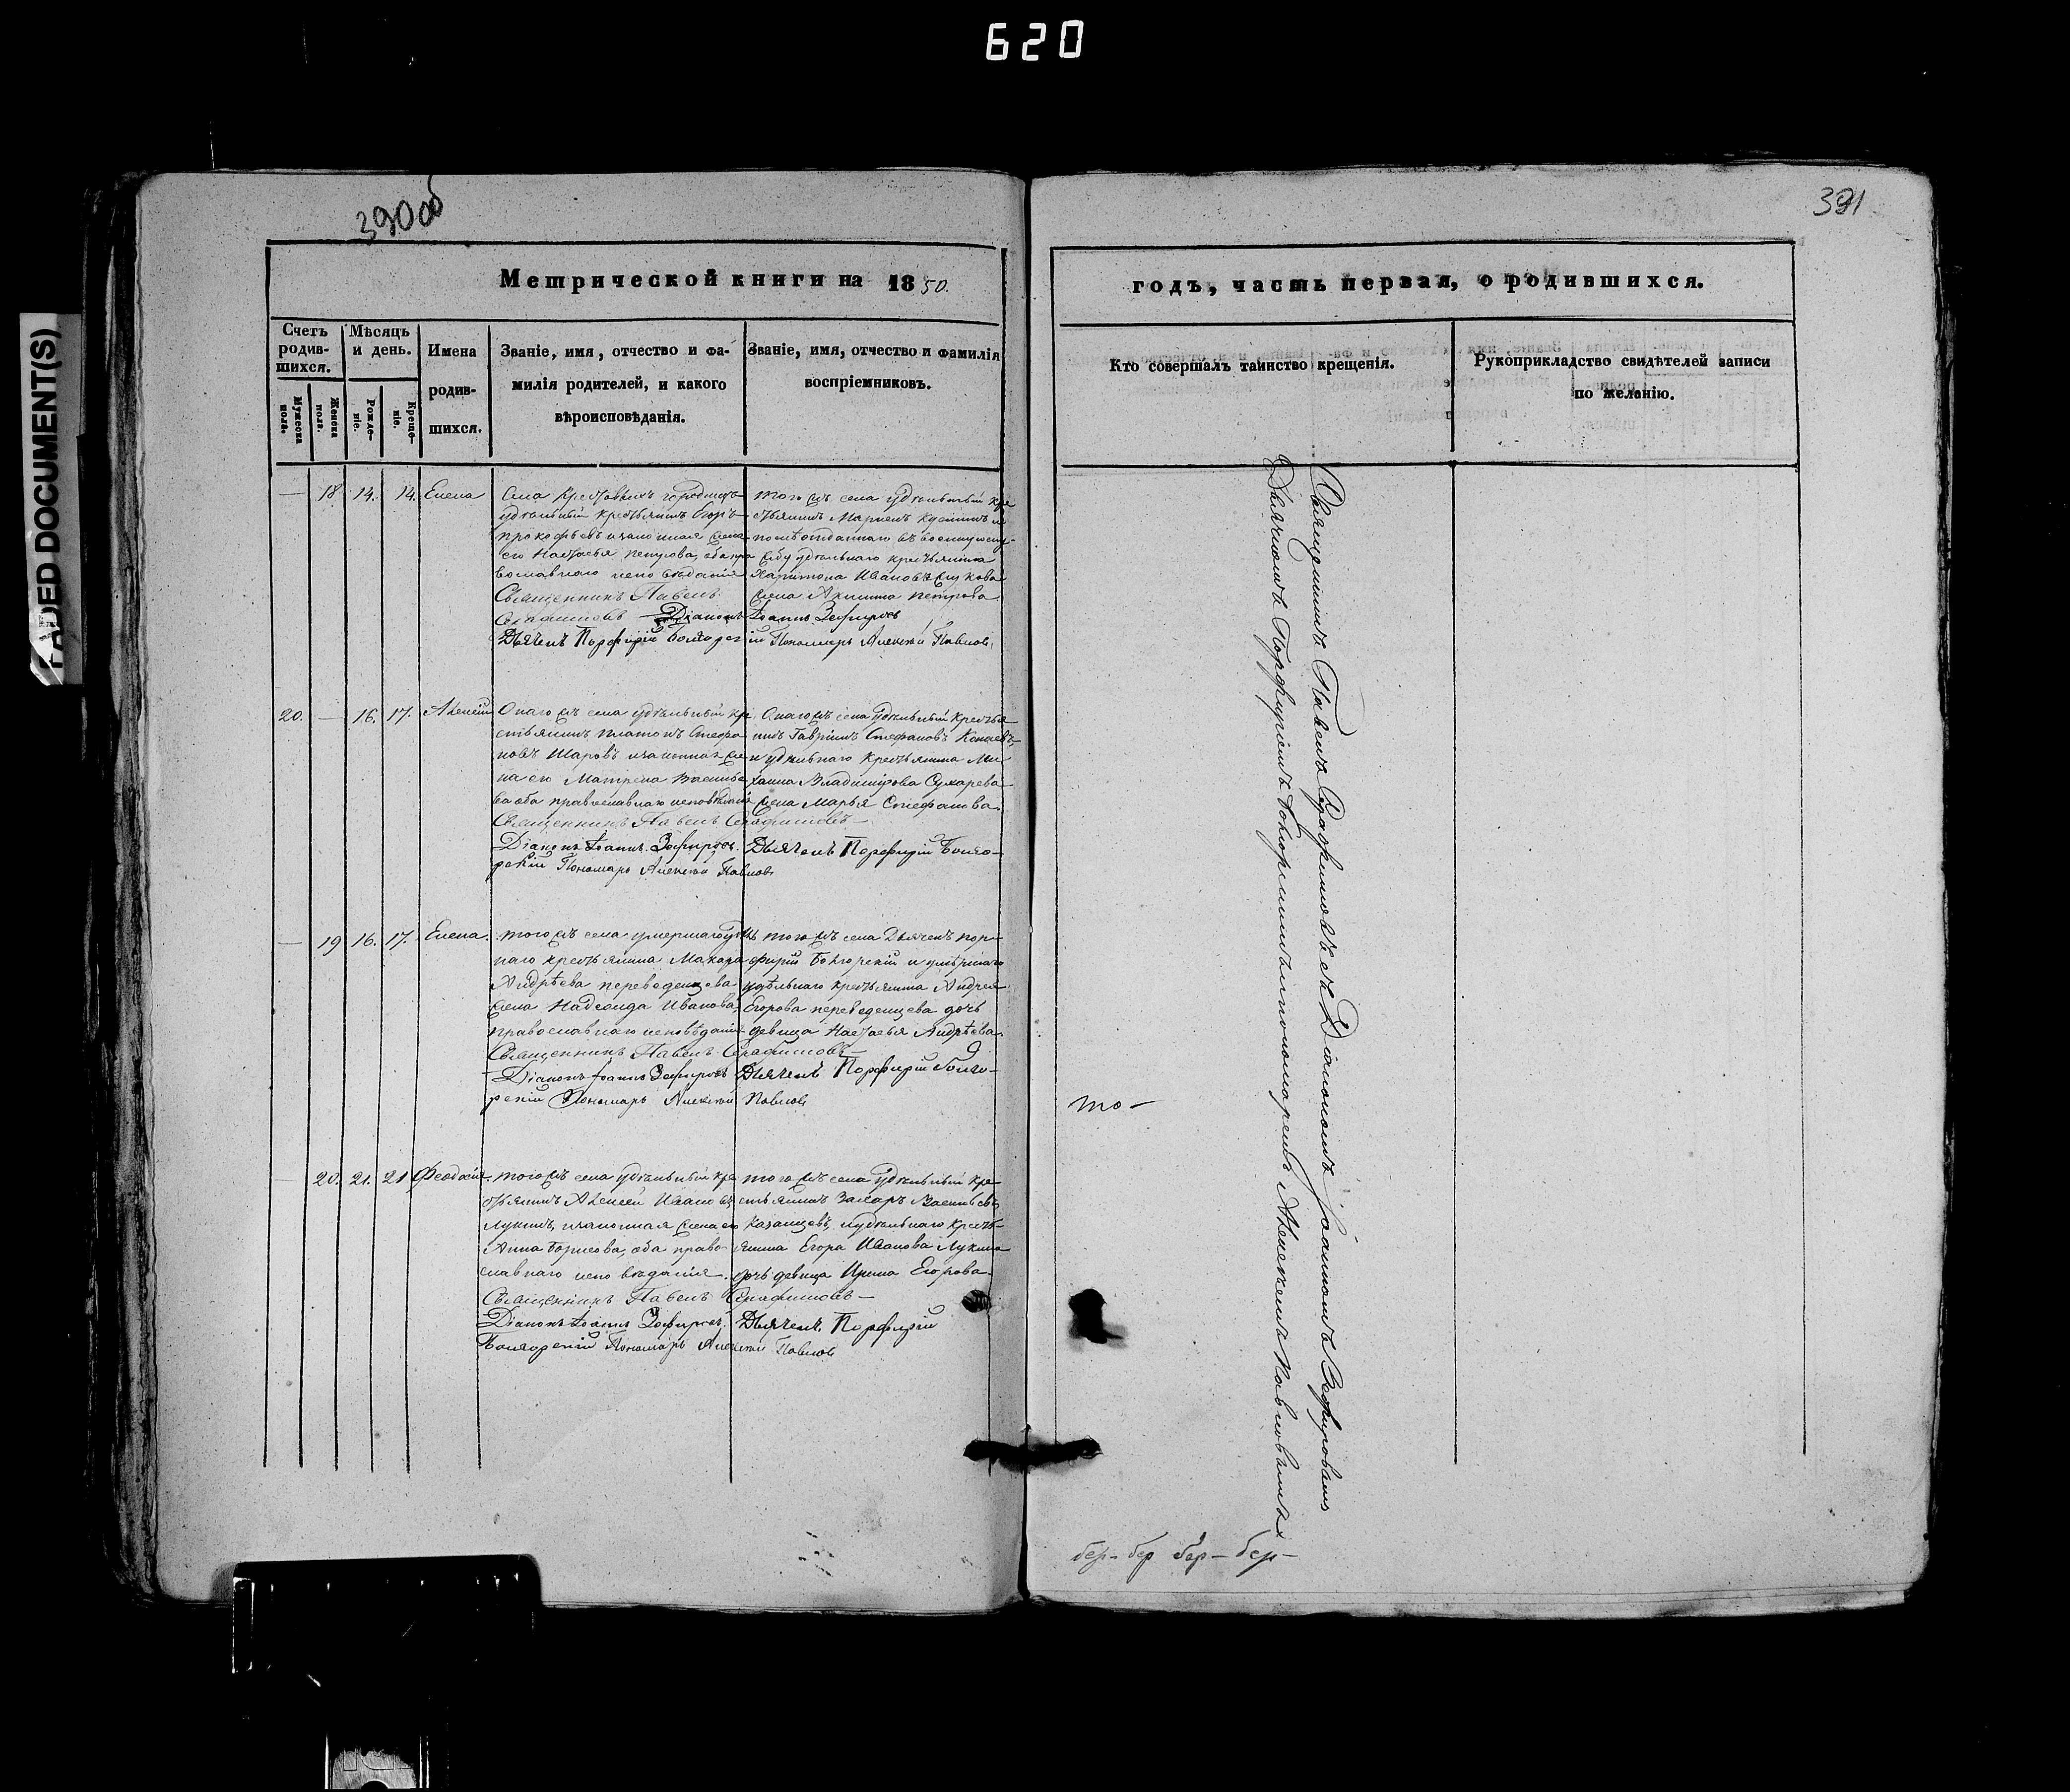 620
FADED DOCUMENT(S)
390об
391
Метрической книги на 1850.
годъ, часть первая, о родившихся.
Счетъ родив-шихся.
Мужеска пола.
Женска пола.
Мѣсяцъ и день.
Рожде-ніе.
Креще-ніе.
Имена
родив-
шихся.
Званіе, имя, отчество и фа-
милія родителей, и какого
вѣроисповѣданія.
Званіе, имя, отчество и фамилія
воспріемниковъ.
Кто совершалъ таинство крещенія.
Рукоприкладство свидѣтелей записи
по желанію.
— 18 14. 14. Елена
Села Крестовыхъ городищъ
удѣльный крестьянинъ Егоръ
Прокофьевъ и законная жена
его Настасья Петрова, оба пра
вославнаго исповѣданія
Священникъ Павелъ
Серафимовъ Діаконъ Іоаннъ Зефировъ
Дьячекъ Порфирій Боигорскій Пономарь Алексѣй Павлов.
того жъ села удѣльный кре
стьянинъ Маркелъ Кузминъ и
отданнаго въ военную слу-
жбу удѣльнаго крестьянина
Харитона Иванова
жена Акилина Петрова
20. — 16. 17. Алексій
Онаго жъ села удѣльный кре
стьянинъ Платонъ Стефа
новъ Шаровъ и законная же
на его Матрена Василье
ва оба православнаго исповѣданія
Священникъ Павелъ Серафимовъ —
Діаконъ Іоаннъ Зефировъ. Дьячекъ Порфирій Боиго-
рскій Пономарь Алексѣй Павловъ
Онаго жъ села удѣльный крестья
нинъ Гаврiилъ Стефановъ
и удѣльнаго крестьянина Ми
хаила Владимірова Сухарева
жена Марья Стефанова.
— 19 16. 17. Елена.
того жъ села умершаго удѣль
наго крестьянина Макара
Андрѣева Переведенцева
жена Надежда Иванова,
православнаго исповѣданія
Священникъ Павелъ Серафимовъ —
Діаконъ Іоаннъ Зефировъ Дьячекъ Порфирій Боиго-
рскій Пономарь Алексѣй Павловъ
того жъ села Дьячекъ Пор-
фирій Боигорскій и умершаго
удѣльнаго крестьянина Андрея
Егорова Переведенцева дочь
девица Настасья Андрѣева.
20. 21. 21 Феодосія.
того жъ села удѣльный кре
стьянинъ Алексей Ивановъ
Лукинъ, и законная жена его
Анна Борисова, оба право
славнаго исповѣданія.
Священникъ Павелъ Серафимовъ —
Діаконъ Іоаннъ Зефировъ. Дьячекъ. Порфирій
Боигорскій Пономарь Алексѣй Павлов
того жъ села удѣльный кре
стьянинъ Захаръ Васильевъ
Казанцевъ, и удѣльнаго кресть-
янина Егора Иванова Лукина
дочь девица Ирина Егорова.
Священникъ Павелъ Серафимовъ съ Діакономъ Іоанномъ Зефировымъ
Дьячкомъ Порфиріемъ Боигорскимъ и пономаремъ Алексѣемъ Павловымъ.
то —
бер- бер бер — бер —